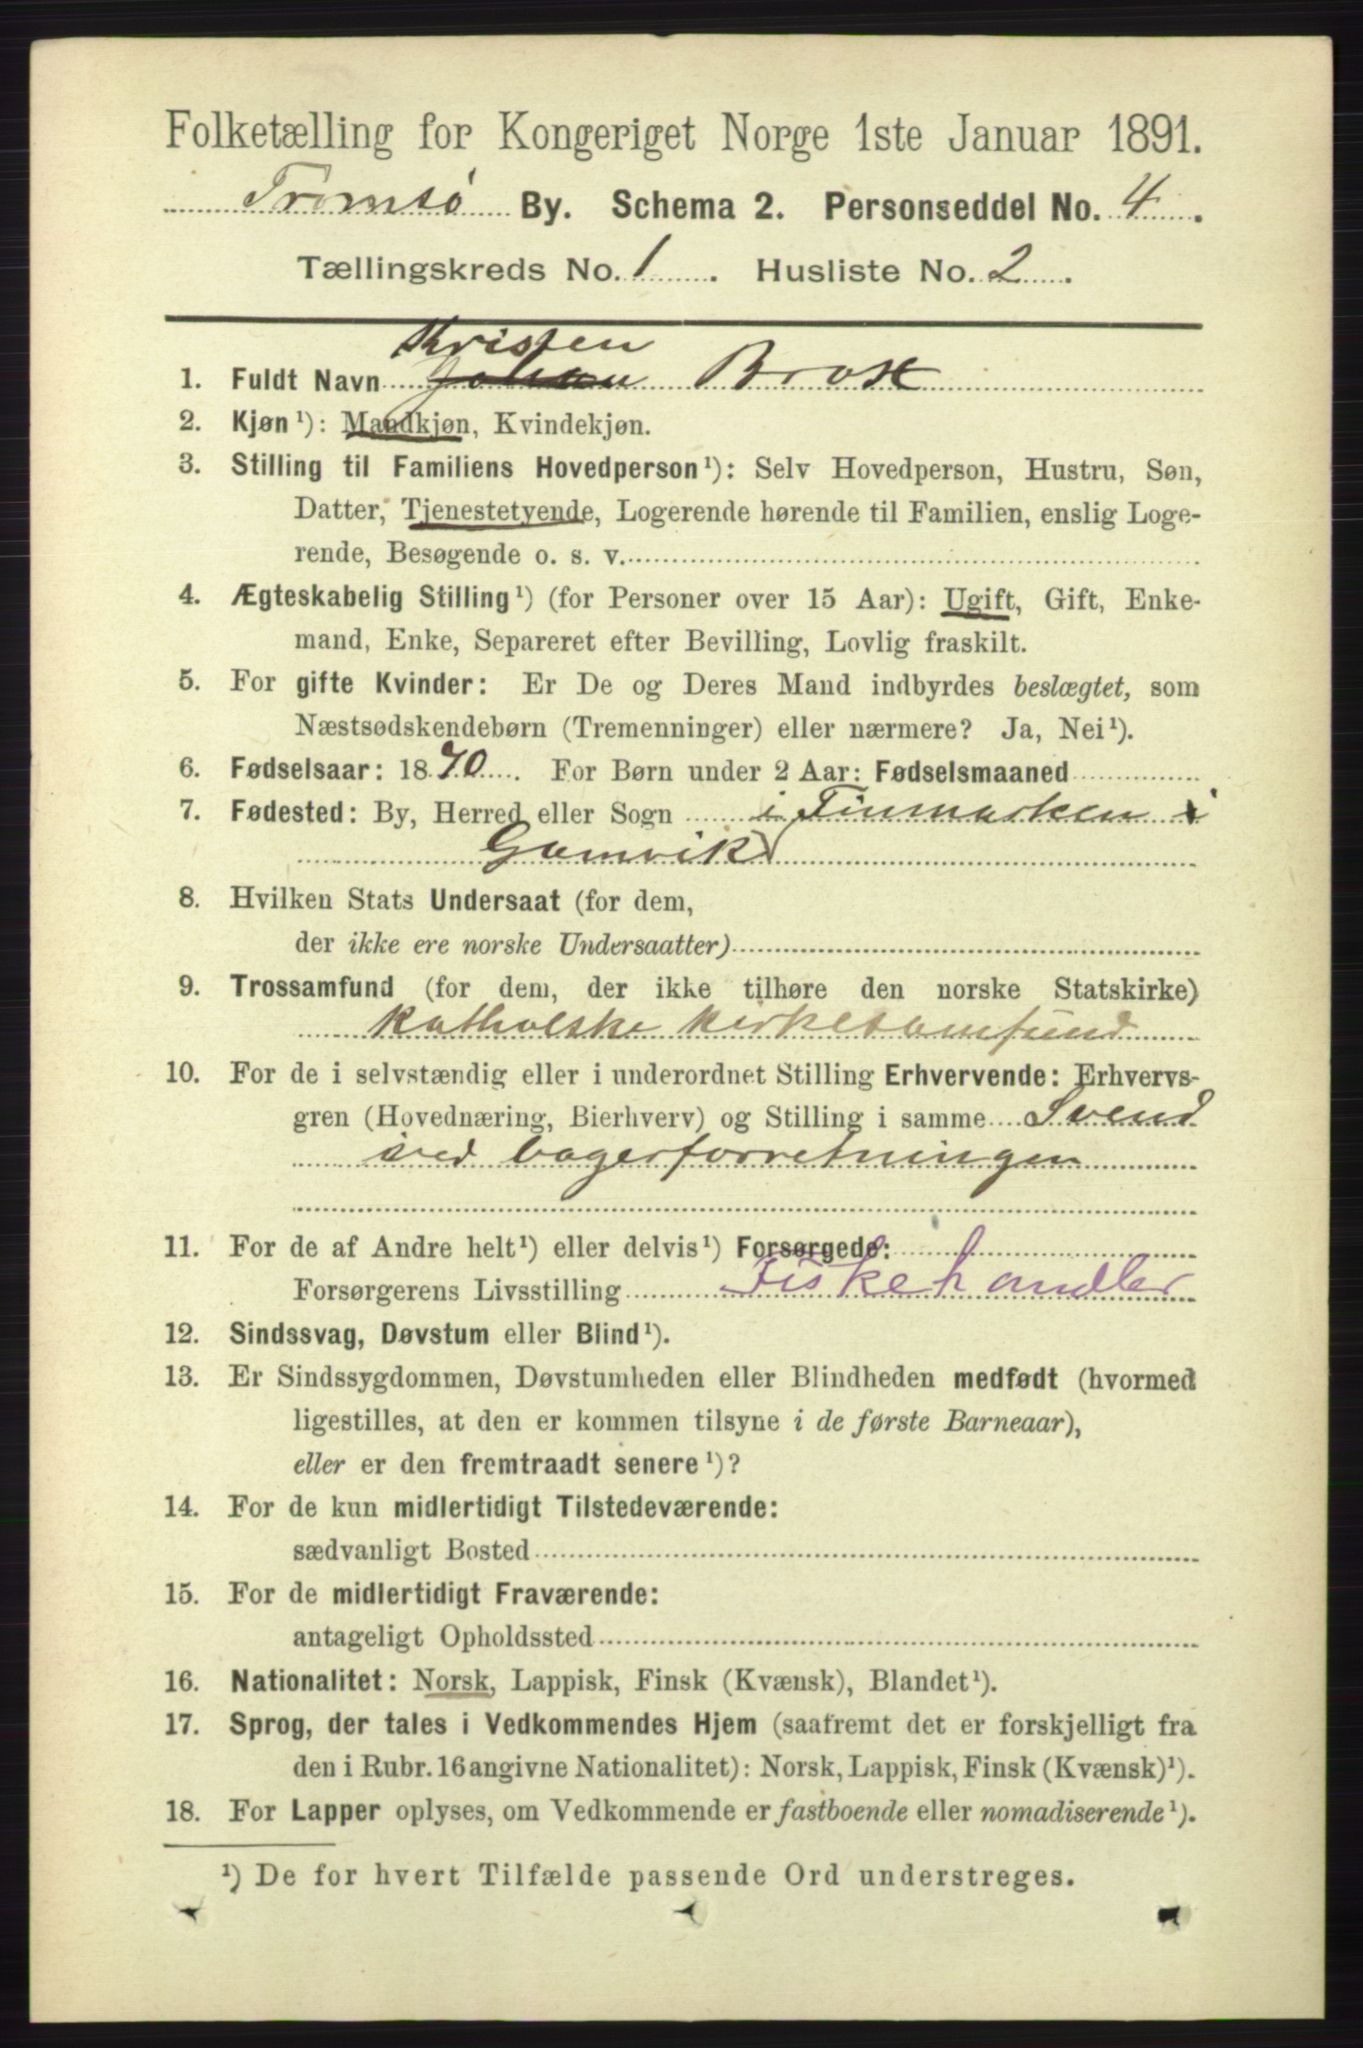 Folketælling for Kongeriget Norge 1ste Januar 1891.
Tromsø By. Schema 2. Personseddel No. 4.
Tællingskreds No. 1. Husliste No. 2.
Kristen
1. Fuldt Navn Johan Brose
2. Kjøn¹): Mandkjøn, Kvindekjøn.
3. Stilling til Familiens Hovedperson¹): Selv Hovedperson, Hustru, Søn,
Datter, Tjenestetyende, Logerende hørende til Familien, enslig Loge-
rende, Besøgende o. s. v.
4. Ægteskabelig Stilling¹) (for Personer over 15 Aar): Ugift, Gift, Enke-
mand, Enke, Separeret efter Bevilling, Lovlig fraskilt.
5. For gifte Kvinder: Er De og Deres Mand indbyrdes beslægtet, som
Næstsødskendebørn (Tremenninger) eller nærmere? Ja, Nei¹).
6. Fødselsaar: 1870. For Børn under 2 Aar: Fødselsmaaned
7. Fødested: By, Herred eller Sogn i Finmarken i
Gamvik
8. Hvilken Stats Undersaat (for dem,
der ikke ere norske Undersaatter)
9. Trossamfund (for dem, der ikke tilhøre den norske Statskirke)
Katholske kirkesamfund
10. For de i selvstændig eller i underordnet Stilling Erhvervende: Erhvervs-
gren (Hovednæring, Bierhverv) og Stilling i samme Svend
ved bagerforretningen
11. For de af Andre helt¹) eller delvis¹) Forsørgede:
Forsørgerens Livsstilling Fiskehandler
12. Sindssvag, Døvstum eller Blind¹).
13. Er Sindssygdommen, Døvstumheden eller Blindheden medfødt (hvormed
ligestilles, at den er kommen tilsyne i de første Barneaar),
eller er den fremtraadt senere¹)?
14. For de kun midlertidigt Tilstedeværende:
sædvanligt Bosted
15. For de midlertidigt Fraværende:
antageligt Opholdssted
16. Nationalitet: Norsk, Lappisk, Finsk (Kvænsk), Blandet¹).
17. Sprog, der tales i Vedkommendes Hjem (saafremt det er forskjelligt fra
den i Rubr. 16 angivne Nationalitet): Norsk, Lappisk, Finsk (Kvænsk)¹).
18. For Lapper oplyses, om Vedkommende er fastboende eller nomadiserende¹).
¹) De for hvert Tilfælde passende Ord understreges.